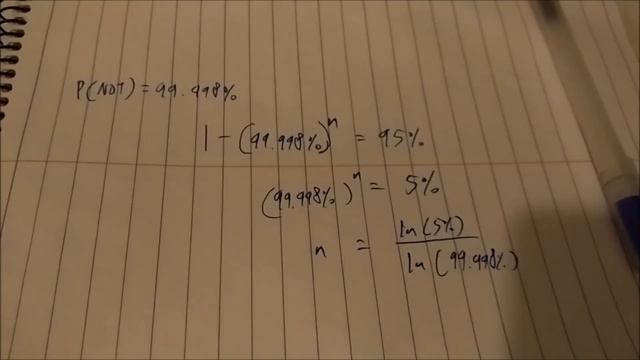 P(NOT) = 99.998%
1 - (99.998%)^n = 95%
(99.998%)^n = 5%
n = ln(5%) / ln(99.998%)